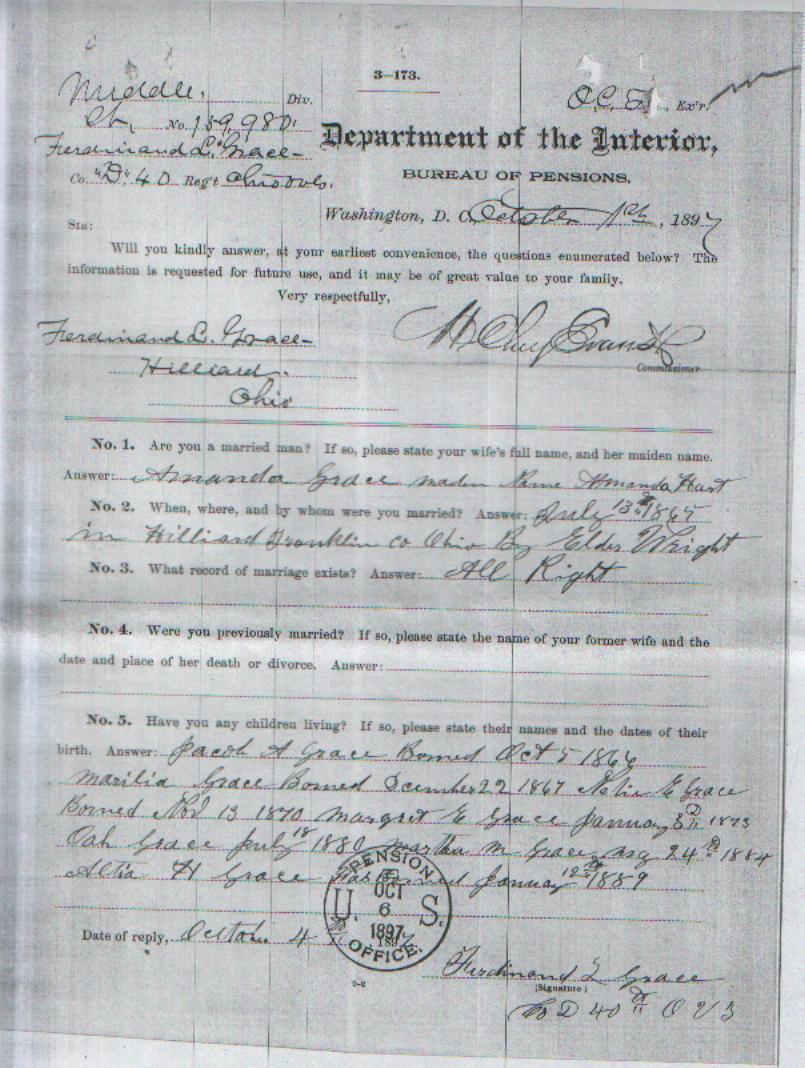 3—173.
Middle. Div. O.C.F. Ex'r.
Ct. No. 159,980.
Ferdinand L. Grace
Co. "D" 40 Reg't Ohio Vols.
Department of the Interior,
BUREAU OF PENSIONS,
Washington, D. C., October 1st, 1897
SIR:
Will you kindly answer, at your earliest convenience, the questions enumerated below? The
information is requested for future use, and it may be of great value to your family.
Very respectfully,
Ferdinand L. Grace
Hilliard.
Ohio
H Clay Evans
Commissioner
No. 1. Are you a married man? If so, please state your wife's full name, and her maiden name.
Answer: Amanda Grace maden Name Amanda Hart
No. 2. When, where, and by whom were you married? Answer: July 13th 1865
in Hilliard Franklin co Ohio By Elder Wright
No. 3. What record of marriage exists? Answer: All Right
No. 4. Were you previously married? If so, please state the name of your former wife and the
date and place of her death or divorce. Answer:
No. 5. Have you any children living? If so, please state their names and the dates of their
birth. Answer: Jacob A Grace Borned Oct 5 1866
Marilia Grace Borned December 22 1867 E Grace
Borned Nov 13 1870 Margret E Grace January 3 1873
Oah Grace July 18 1880 Martha M Grace Aug 24 1884
Altia H Grace Borned January 12 1889
PENSION
OCT
U. 6 S.
1897
OFFICE.
Date of reply, October 4 1897
Ferdinand L Grace
(Signature)
Co D 40th O V I